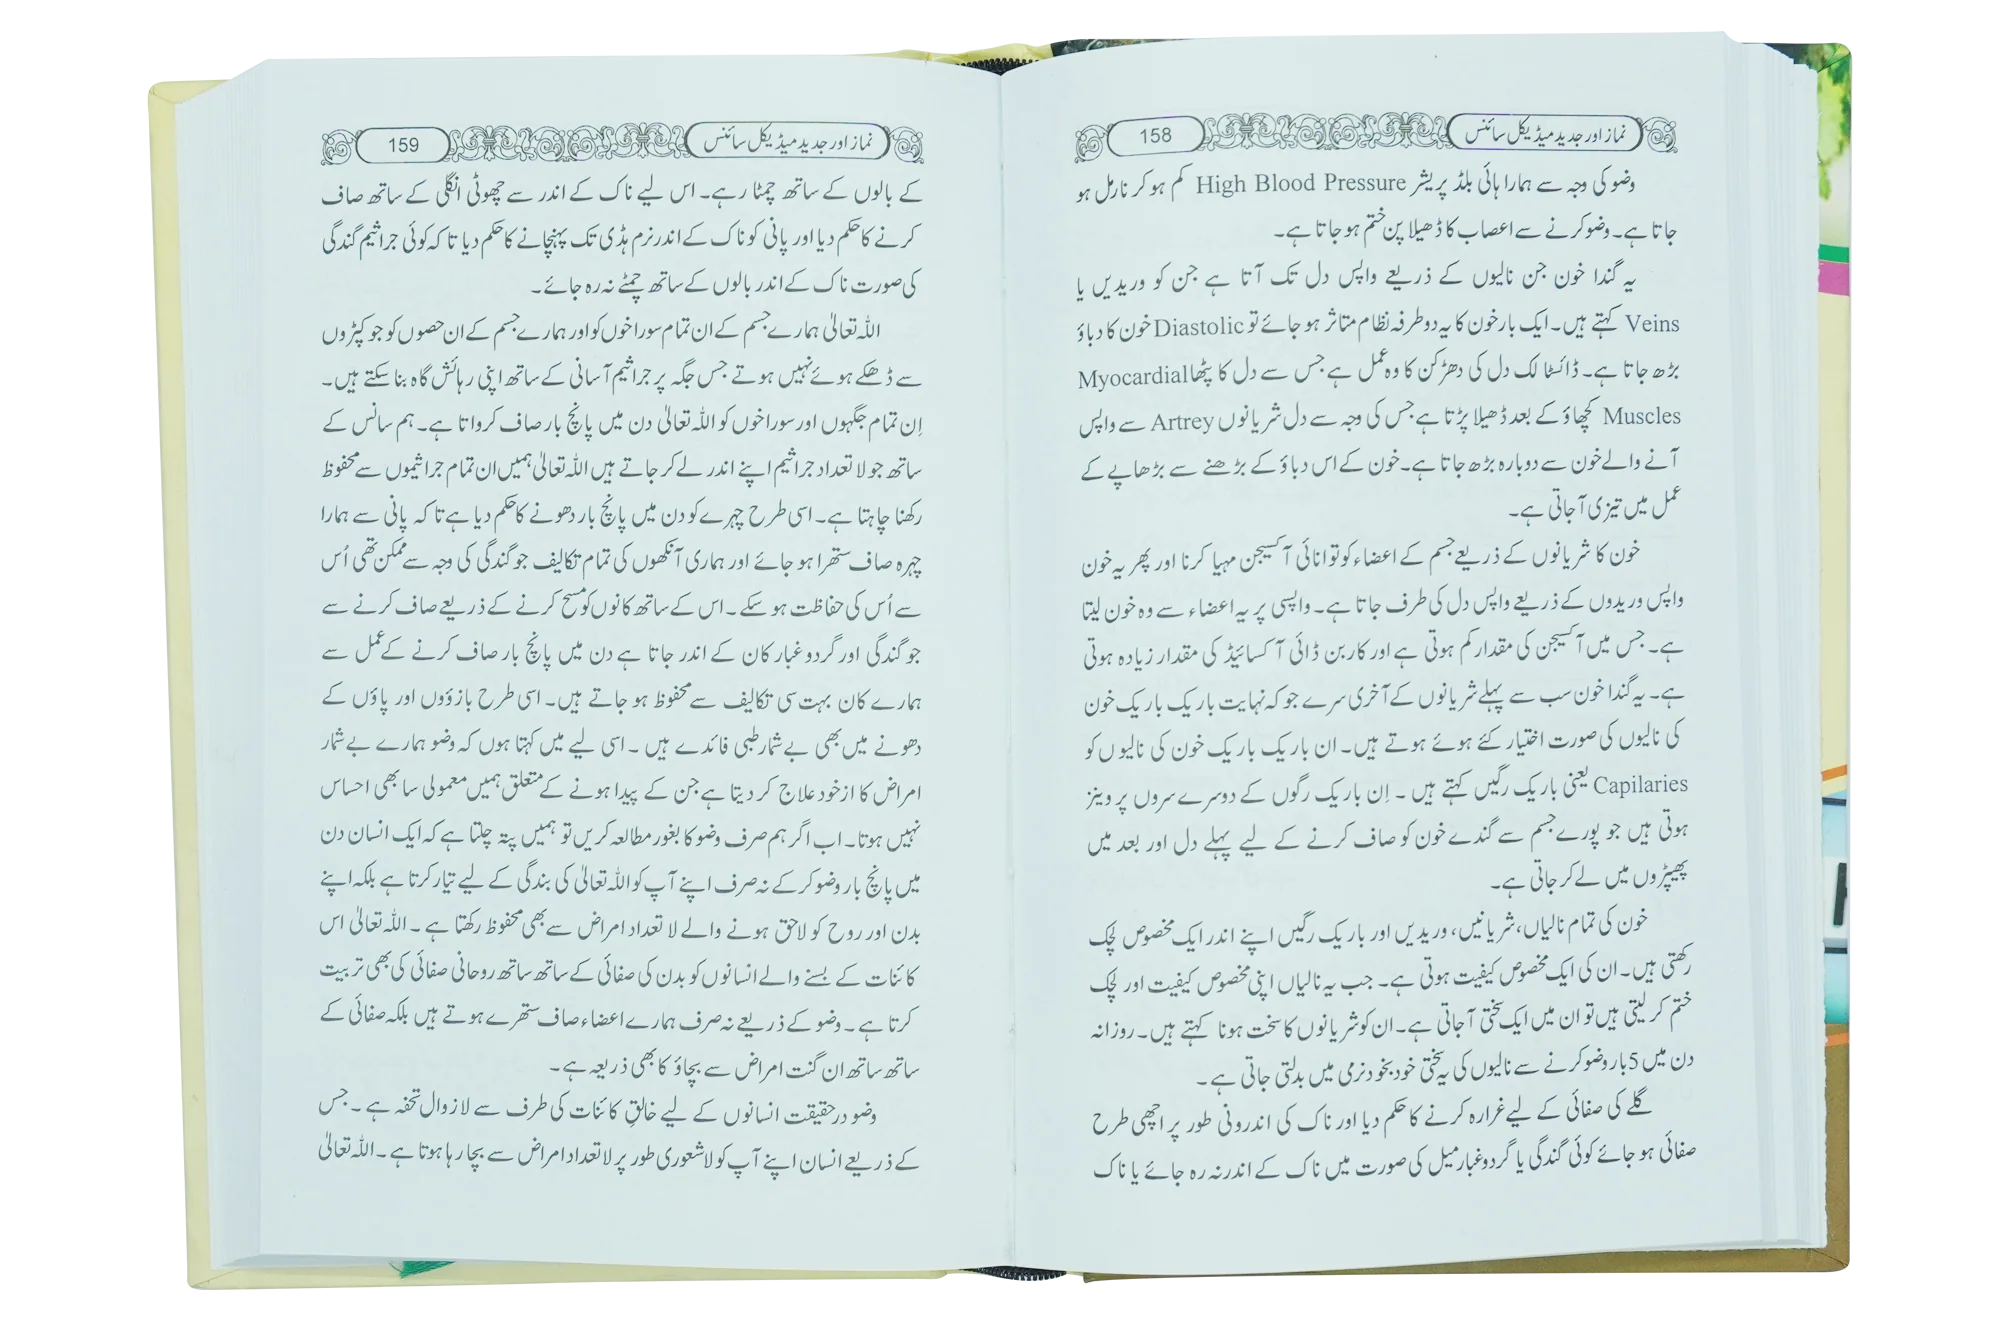 نماز اور جدید میڈیکل سائنس 158
وضو کی وجہ سے ہمارا ہائی بلڈ پریشر High Blood Pressure کم ہو کر نارمل ہو
جاتا ہے۔ وضو کرنے سے اعصاب کا ڈھیلا پن ختم ہو جاتا ہے۔
یہ گندا خون جن نالیوں کے ذریعے واپس دل تک آتا ہے جن کو وریدیں یا
Veins کہتے ہیں۔ ایک بار خون کا یہ دو طرفہ نظام متاثر ہو جائے تو Diastolic خون کا دباؤ
بڑھ جاتا ہے۔ ڈائسٹا لک دل کی دھڑکن کا وہ عمل ہے جس سے دل کا پٹھا Myocardial
Muscles کھچاؤ کے بعد ڈھیلا پڑتا ہے جس کی وجہ سے دل شریانوں Artrey سے واپس
آنے والے خون سے دوبارہ بڑھ جاتا ہے۔ خون کے اس دباؤ کے بڑھنے سے بڑھاپے کے
عمل میں تیزی آجاتی ہے۔
خون کا شریانوں کے ذریعے جسم کے اعضاء کو توانائی آکسیجن مہیا کرنا اور پھر یہ خون
واپس وریدوں کے ذریعے واپس دل کی طرف جاتا ہے۔ واپسی پر یہ اعضاء سے وہ خون لیتا
ہے۔ جس میں آکسیجن کی مقدار کم ہوتی ہے اور کاربن ڈائی آکسائیڈ کی مقدار زیادہ ہوتی
ہے۔ یہ گندا خون سب سے پہلے شریانوں کے آخری سرے جو کہ نہایت باریک باریک خون
کی نالیوں کی صورت اختیار کئے ہوئے ہوتے ہیں۔ ان باریک باریک خون کی نالیوں کو
Capilaries یعنی باریک رگیں کہتے ہیں ۔ اِن باریک رگوں کے دوسرے سروں پر وینز
ہوتی ہیں جو پورے جسم سے گندے خون کو صاف کرنے کے لیے پہلے دل اور بعد میں
پھیپڑوں میں لے کر جاتی ہے۔
خون کی تمام نالیاں، شریانیں، وریدیں اور باریک رگیں اپنے اندر ایک مخصوص لچک
رکھتی ہیں۔ ان کی ایک مخصوص کیفیت ہوتی ہے۔ جب یہ نالیاں اپنی مخصوص کیفیت اور لچک
ختم کر لیتی ہیں تو ان میں ایک سختی آجاتی ہے۔ ان کو شریانوں کا سخت ہونا کہتے ہیں۔ روزانہ
دن میں 5 بار وضو کرنے سے نالیوں کی یہ سختی خود بخود نرمی میں بدلتی جاتی ہے۔
گلے کی صفائی کے لیے غرارہ کرنے کا حکم دیا اور ناک کی اندرونی طور پر اچھی طرح
صفائی ہو جائے کوئی گندگی یا گرد و غبار میل کی صورت میں ناک کے اندر نہ رہ جائے یا ناک
نماز اور جدید میڈیکل سائنس 159
کے بالوں کے ساتھ چمٹا رہے۔ اس لیے ناک کے اندر سے چھوٹی انگلی کے ساتھ صاف
کرنے کا حکم دیا اور پانی کو ناک کے اندر نرم ہڈی تک پہنچانے کا حکم دیا تا کہ کوئی جراثیم گندگی
کی صورت ناک کے اندر بالوں کے ساتھ چمٹے نہ رہ جائے۔
اللہ تعالیٰ ہمارے جسم کے ان تمام سوراخوں کو اور ہمارے جسم کے ان حصوں کو جو کپڑوں
سے ڈھکے ہوئے نہیں ہوتے جس جگہ پر جراثیم آسانی کے ساتھ اپنی رہائش گاہ بنا سکتے ہیں۔
اِن تمام جگہوں اور سوراخوں کو اللہ تعالیٰ دن میں پانچ بار صاف کرواتا ہے۔ ہم سانس کے
ساتھ جو لا تعداد جراثیم اپنے اندر لے کر جاتے ہیں اللہ تعالیٰ ہمیں ان تمام جراثیموں سے محفوظ
رکھنا چاہتا ہے۔ اسی طرح چہرے کو دن میں پانچ بار دھونے کا حکم دیا ہے تا کہ پانی سے ہمارا
چہرہ صاف ستھرا ہو جائے اور ہماری آنکھوں کی تمام تکالیف جو گندگی کی وجہ سے ممکن تھی اُس
سے اُس کی حفاظت ہو سکے۔ اس کے ساتھ کانوں کو مسح کرنے کے ذریعے صاف کرنے سے
جو گندگی اور گرد و غبار کان کے اندر جاتا ہے دن میں پانچ بار صاف کرنے کے عمل سے
ہمارے کان بہت سی تکالیف سے محفوظ ہو جاتے ہیں۔ اسی طرح بازوؤں اور پاؤں کے
دھونے میں بھی بے شمار طبی فائدے ہیں ۔ اسی لیے میں کہتا ہوں کہ وضو ہمارے بے شمار
امراض کا از خود علاج کر دیتا ہے جن کے پیدا ہونے کے متعلق ہمیں معمولی سا بھی احساس
نہیں ہوتا۔ اب اگر ہم صرف وضو کا بغور مطالعہ کریں تو ہمیں پتہ چلتا ہے کہ ایک انسان دن
میں پانچ بار وضو کر کے نہ صرف اپنے آپ کو اللہ تعالیٰ کی بندگی کے لیے تیار کرتا ہے بلکہ اپنے
بدن اور روح کو لاحق ہونے والے لا تعداد امراض سے بھی محفوظ رکھتا ہے ۔ اللہ تعالیٰ اس
کائنات کے بسنے والے انسانوں کو بدن کی صفائی کے ساتھ ساتھ روحانی صفائی کی بھی تربیت
کرتا ہے ۔ وضو کے ذریعے نہ صرف ہمارے اعضاء صاف ستھرے ہوتے ہیں بلکہ صفائی کے
ساتھ ساتھ ان گنت امراض سے بچاؤ کا بھی ذریعہ ہے۔
وضو در حقیقت انسانوں کے لیے خالقِ کائنات کی طرف سے لازوال تحفہ ہے ۔ جس
کے ذریعے انسان اپنے آپ کو لاشعوری طور پر لا تعداد امراض سے بچا رہا ہوتا ہے ۔ اللہ تعالیٰ